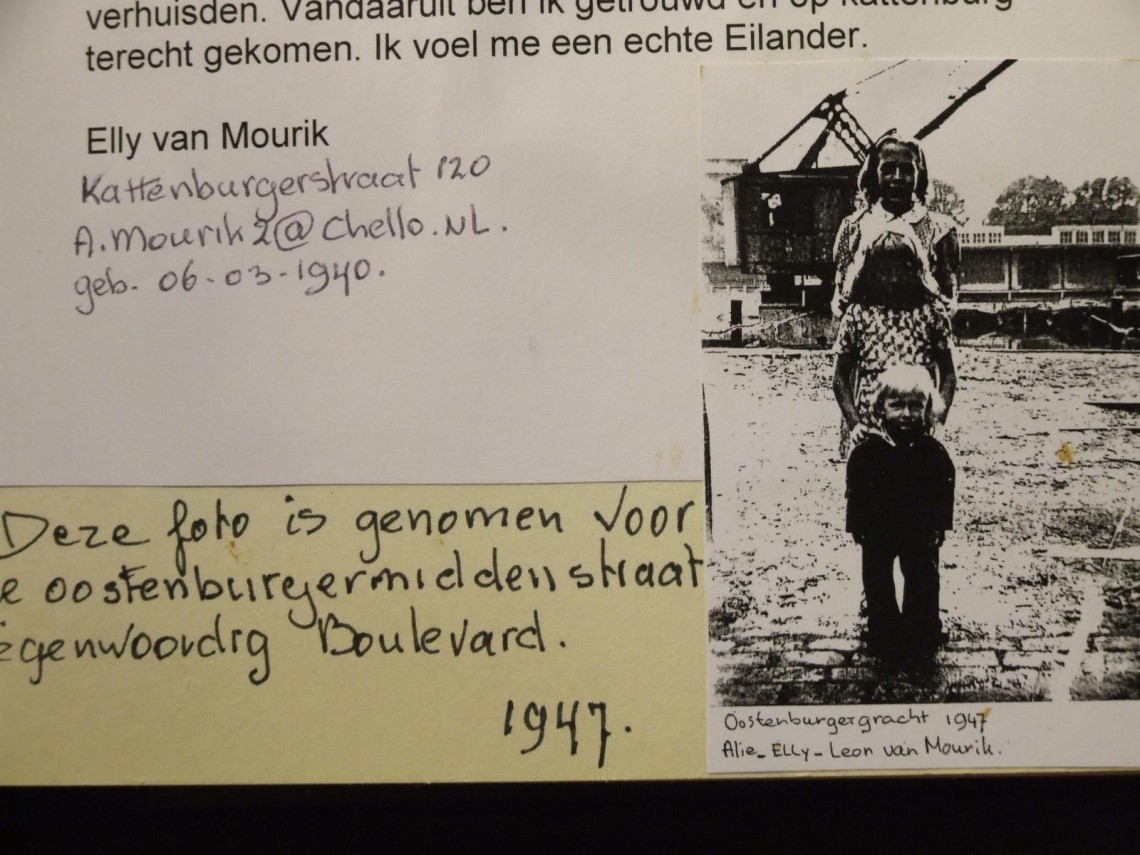 verhuisden. Vandaaruit ben ik getrouwd en op Kattenburg
terecht gekomen. Ik voel me een echte Eilander.
Elly van Mourik
Kattenburgerstraat 120
A.Mourik2@Chello.NL.
geb. 06-03-1940.
Deze foto is genomen voor
e oostenburgermiddenstraat
egenwoordig Boulevard.
1947.
Oostenburgergracht 1947
Alie-Elly-Leon van Mourik.